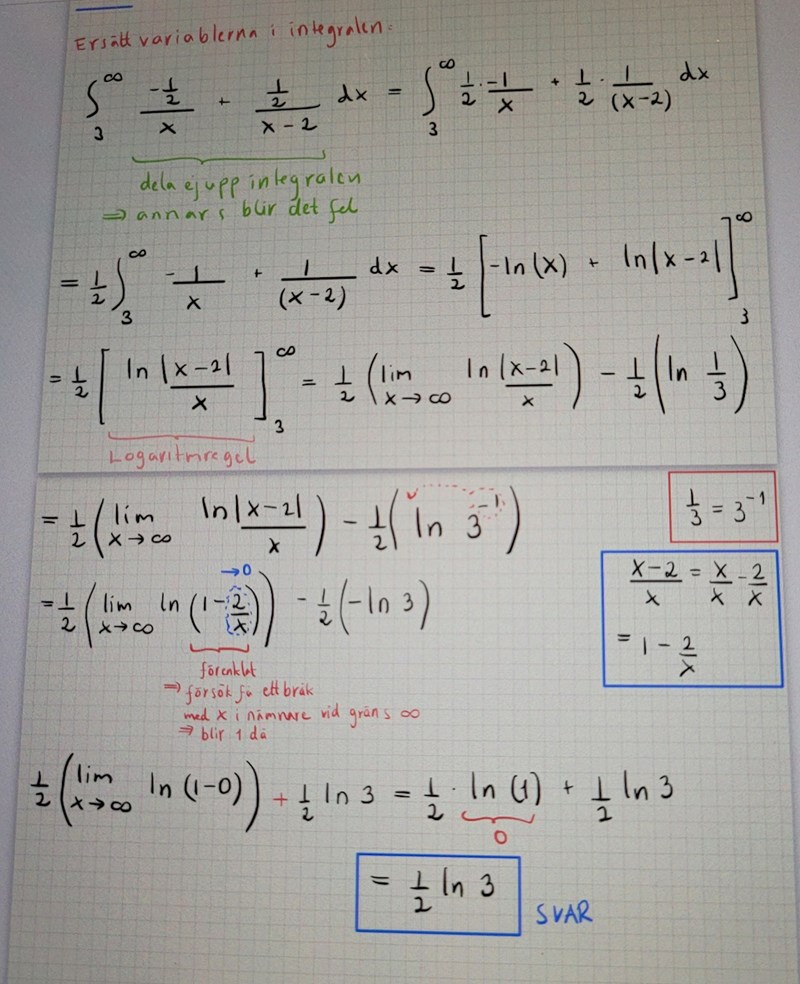 Ersätt variablerna i integralen:
∫₃^∞ (-1/2)/x + (1/2)/(x-2) dx = ∫₃^∞ 1/2 · -1/x + 1/2 · 1/(x-2) dx
dela ej upp integralen
⇒ annars blir det fel
= 1/2 ∫₃^∞ -1/x + 1/(x-2) dx = 1/2 [-ln(x) + ln|x-2|]₃^∞
= 1/2 [ln |x-2|/x]₃^∞ = 1/2 (lim x→∞ ln |x-2|/x) - 1/2 (ln 1/3)
Logaritmregel
= 1/2 (lim x→∞ ln |x-2|/x) - 1/2 (ln 3⁻¹)
1/3 = 3⁻¹
→0
= 1/2 (lim x→∞ ln (1 - 2/x)) - 1/2 (-ln 3)
(x-2)/x = x/x - 2/x
= 1 - 2/x
förenklat
⇒ försök få ett bråk
med x i nämnare vid gräns ∞
⇒ blir 1 då
1/2 (lim x→∞ ln (1-0)) + 1/2 ln 3 = 1/2 · ln (1) + 1/2 ln 3
0
= 1/2 ln 3
SVAR